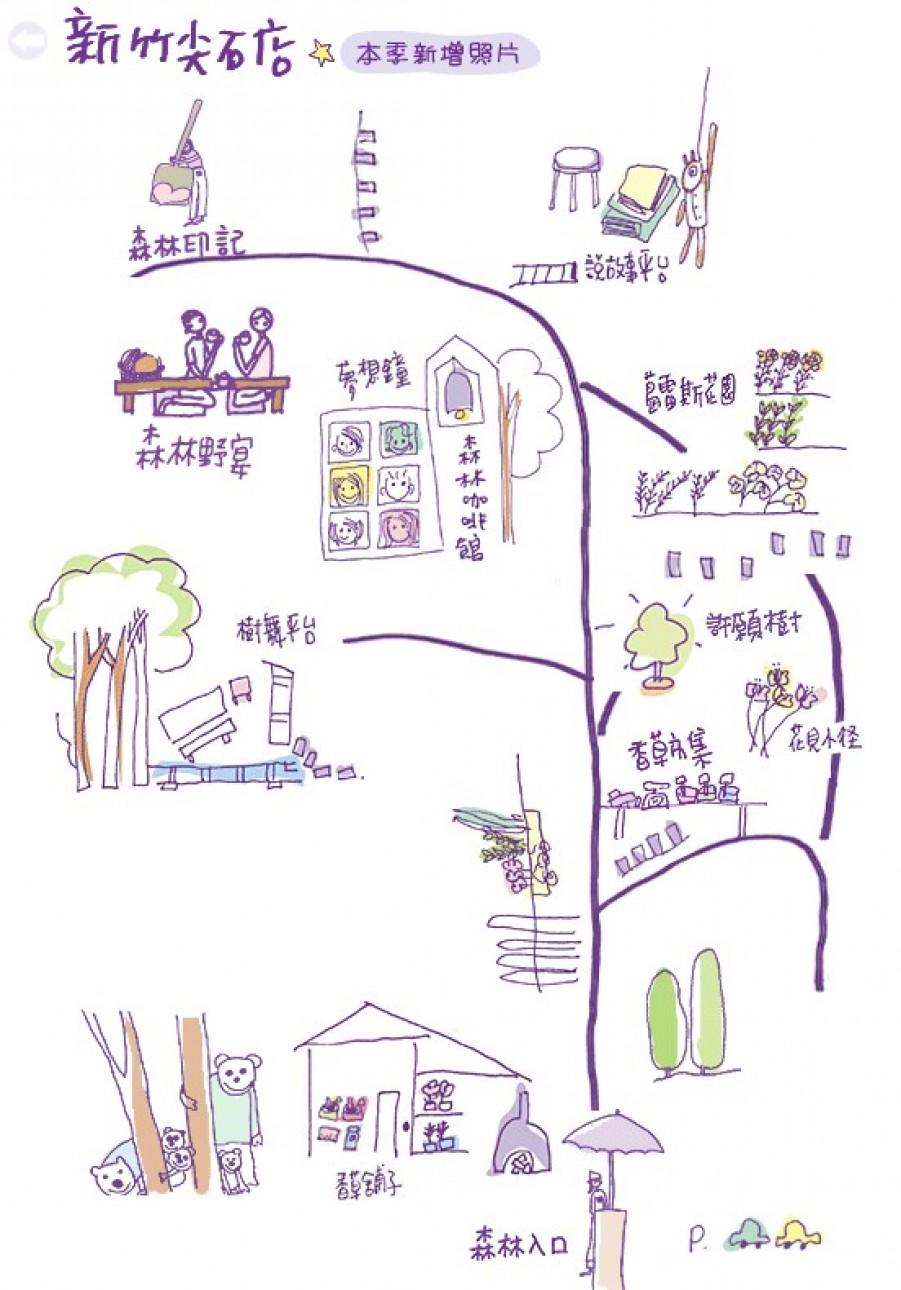 新竹尖石店
本季新增照片
森林印記
說故事平台
夢想鐘
蕾斯花園
森林野宴
森林咖啡館
樹舞平台
許願樹
花見小徑
香草市集
香草舖子
森林入口
P.